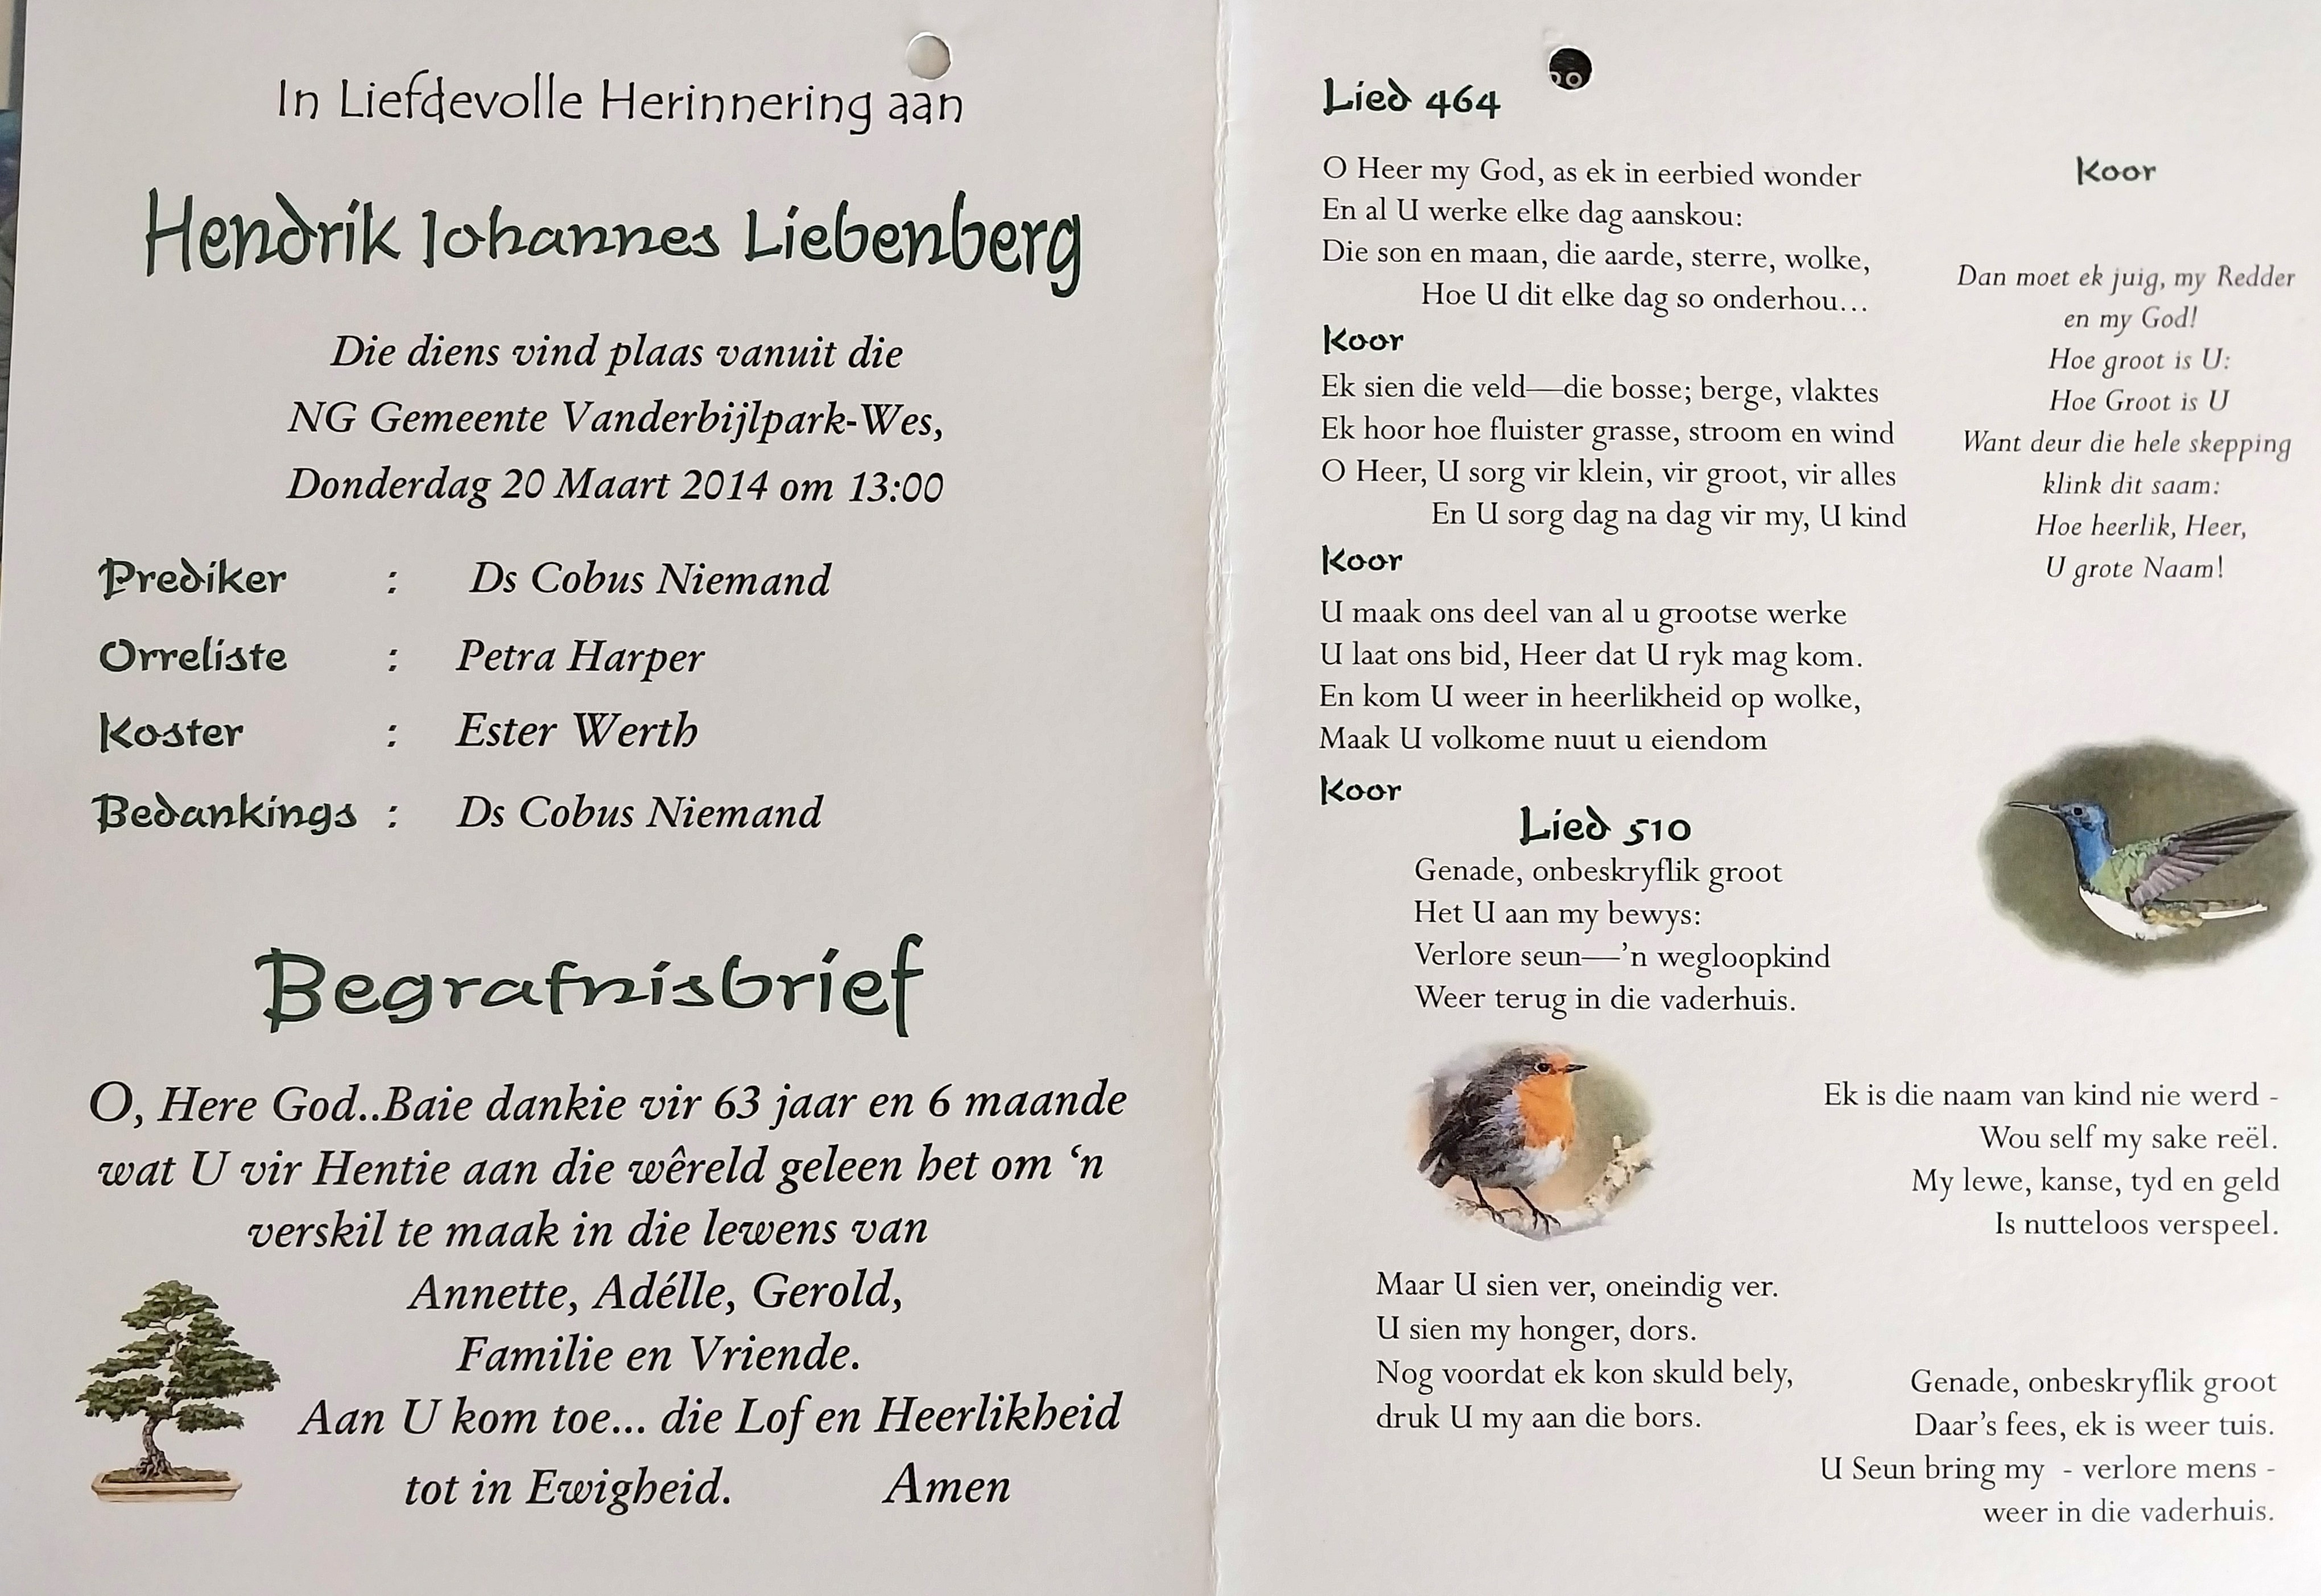 In Liefdevolle Herinnering aan
Hendrik Johannes Liebenberg
Die diens vind plaas vanuit die
NG Gemeente Vanderbijlpark-Wes,
Donderdag 20 Maart 2014 om 13:00
Prediker : Ds Cobus Niemand
Orreliste : Petra Harper
Koster : Ester Werth
Bedankings : Ds Cobus Niemand
Begrafnisbrief
O, Here God..Baie dankie vir 63 jaar en 6 maande
wat U vir Hentie aan die wêreld geleen het om ‘n
verskil te maak in die lewens van
Annette, Adélle, Gerold,
Familie en Vriende.
Aan U kom toe... die Lof en Heerlikheid
tot in Ewigheid. Amen
Lied 464
O Heer my God, as ek in eerbied wonder
En al U werke elke dag aanskou:
Die son en maan, die aarde, sterre, wolke,
Hoe U dit elke dag so onderhou…
Koor
Ek sien die veld—die bosse; berge, vlaktes
Ek hoor hoe fluister grasse, stroom en wind
O Heer, U sorg vir klein, vir groot, vir alles
En U sorg dag na dag vir my, U kind
Koor
U maak ons deel van al u grootse werke
U laat ons bid, Heer dat U ryk mag kom.
En kom U weer in heerlikheid op wolke,
Maak U volkome nuut u eiendom
Koor
Koor
Dan moet ek juig, my Redder
en my God!
Hoe groot is U:
Hoe Groot is U
Want deur die hele skepping
klink dit saam:
Hoe heerlik, Heer,
U grote Naam!
Lied 510
Genade, onbeskryflik groot
Het U aan my bewys:
Verlore seun—’n wegloopkind
Weer terug in die vaderhuis.
Ek is die naam van kind nie werd -
Wou self my sake reël.
My lewe, kanse, tyd en geld
Is nutteloos verspeel.
Maar U sien ver, oneindig ver.
U sien my honger, dors.
Nog voordat ek kon skuld bely,
druk U my aan die bors.
Genade, onbeskryflik groot
Daar’s fees, ek is weer tuis.
U Seun bring my - verlore mens -
weer in die vaderhuis.